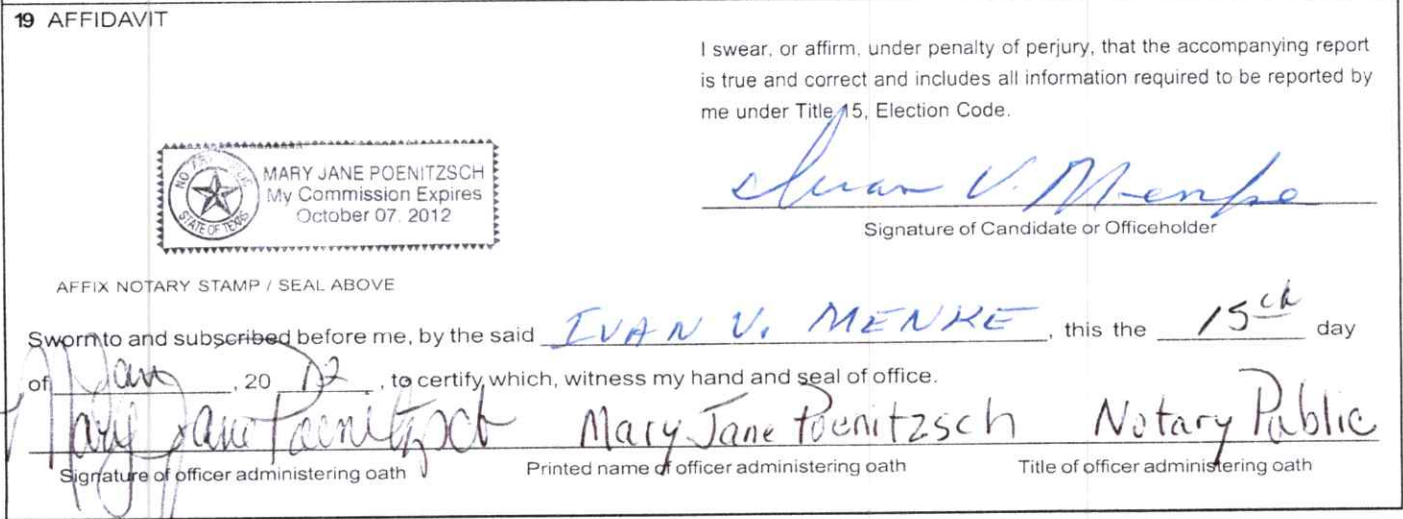 19 AFFIDAVIT
I swear, or affirm, under penalty of perjury, that the accompanying report
is true and correct and includes all information required to be reported by
me under Title 15, Election Code.
MARY JANE POENITZSCH
My Commission Expires
October 07, 2012
STATE OF TEXAS
Ivan V. Menke
Signature of Candidate or Officeholder
AFFIX NOTARY STAMP / SEAL ABOVE
Sworn to and subscribed before me, by the said IVAN V. MENKE, this the 15th day
of Jan, 20 12, to certify which, witness my hand and seal of office.
Mary Jane Poenitzsch Mary Jane Poenitzsch Notary Public
Signature of officer administering oath Printed name of officer administering oath Title of officer administering oath